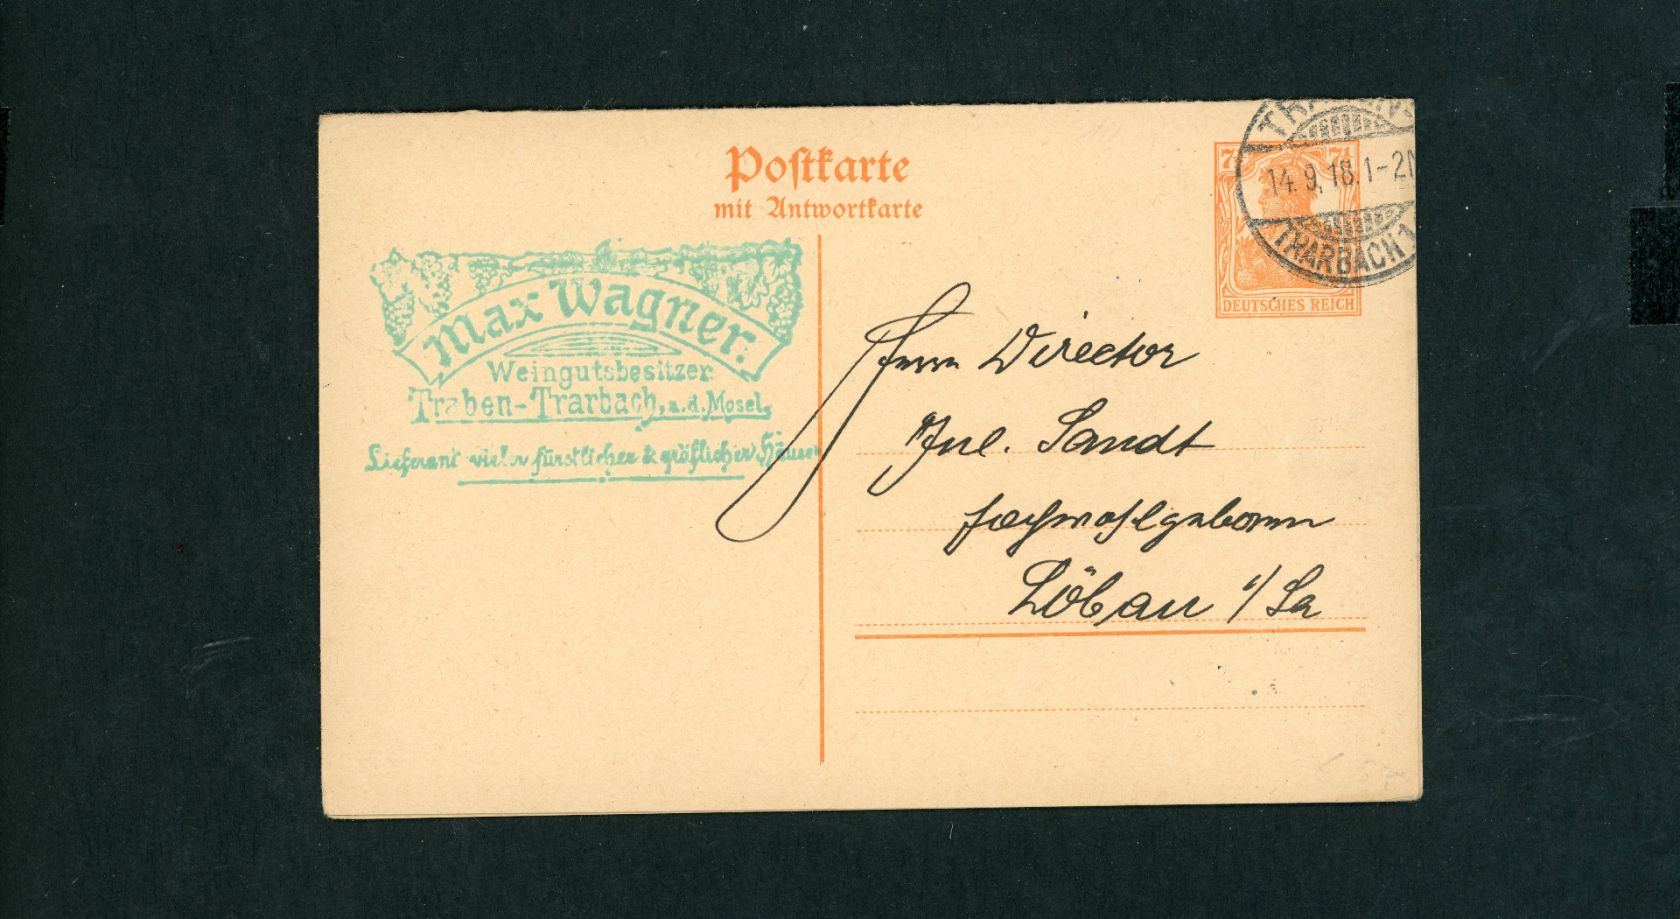 Postkarte
mit Antwortkarte
Max Wagner.
Weingutsbesitzer
Traben-Trarbach, a.d. Mosel,
Lieferant vieler fürstlicher & gräflicher Häuser
TRABEN-
14.9.18.1-2N
TRARBACH 1
7½ 7½
DEUTSCHES REICH
Herrn Director
Jul. Sandt
Hochwohlgeboren
Löbau i/Sa